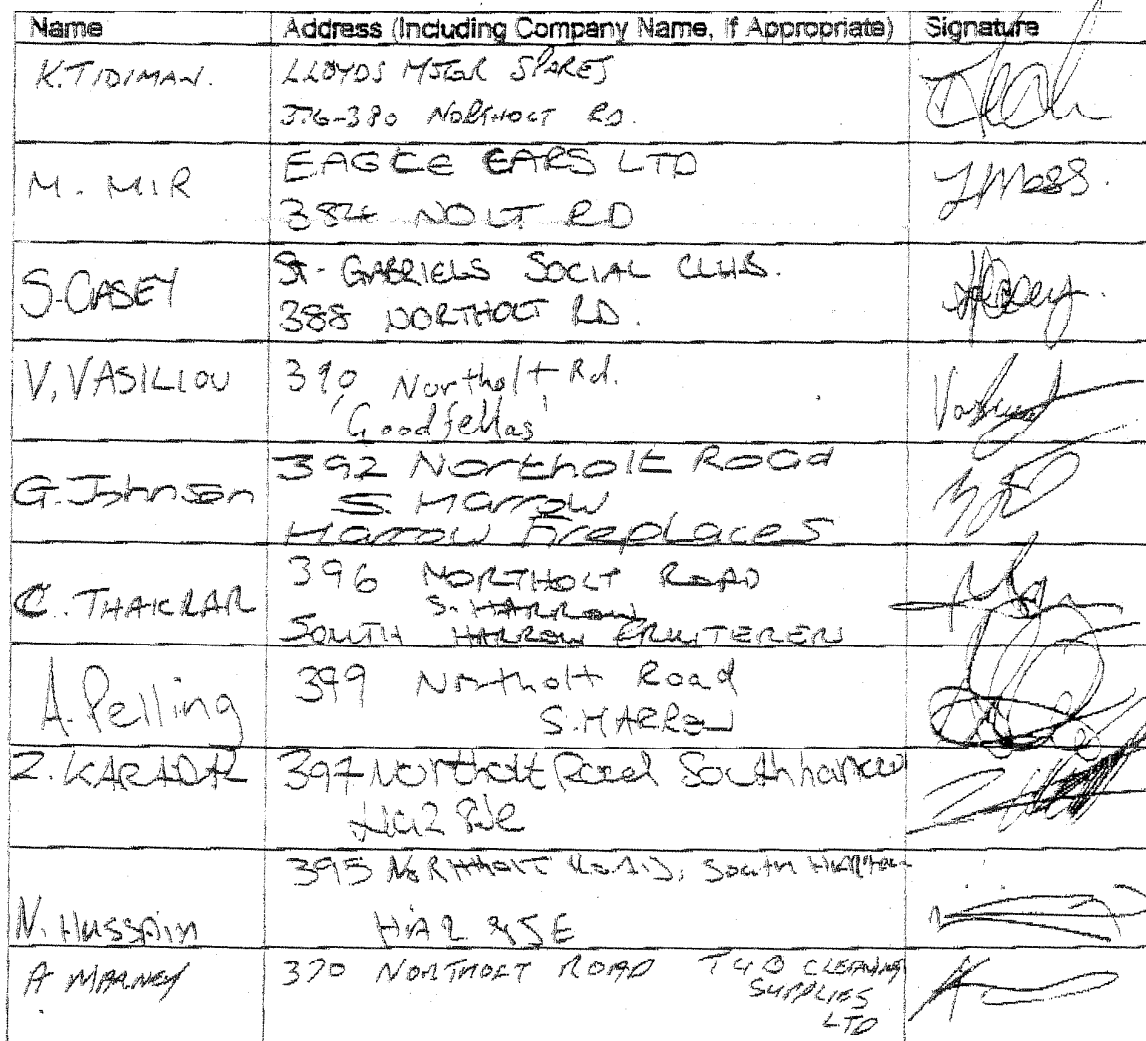 Name Address (Including Company Name, If Appropriate) Signature
K. TIDIMAN. LLOYDS MOTOR SPARES
376-380 NORTHOLT RD.
M. MIR EAGLE CARS LTD
384 NOLT RD
S. CASEY St. GABRIELS SOCIAL CLUB.
388 NORTHOLT RD.
V. VASILIOU 390 Northolt Rd.
'Goodfellas'
G. Johnson 392 Northolt Road
S. Harrow
Harrow Fireplaces
C. THAKRAR 396 NORTHOLT ROAD
S. HARROW
SOUTH HARROW
A. Pelling 399 Northolt Road
S. HARROW
Z. KARADAL 397 Northolt Road South harrow
HA2 8JE
395 NORTHOLT ROAD, South HARROW
N. HUSSAIN HA2 8JE
A MARNEY 370 NORTHOLT ROAD T & B CLEANING
SUPPLIES
LTD